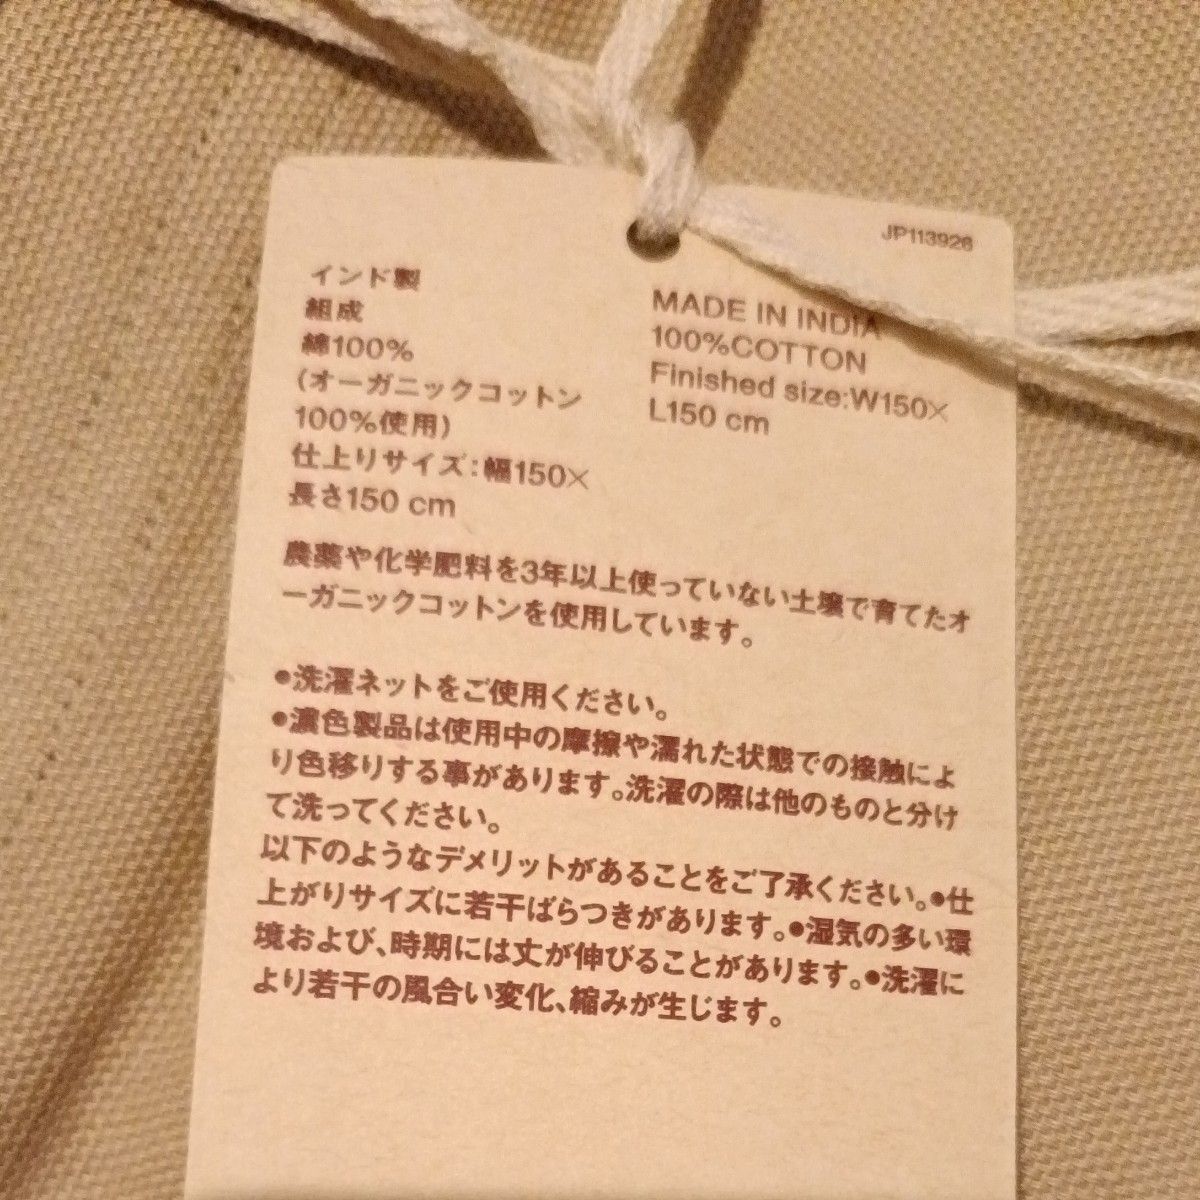 JP113926
インド製
組成
綿100%
(オーガニックコットン
100%使用)
仕上りサイズ:幅150×
長さ150 cm
MADE IN INDIA
100%COTTON
Finished size:W150×
L150 cm
農薬や化学肥料を3年以上使っていない土壌で育てたオ
ーガニックコットンを使用しています。
●洗濯ネットをご使用ください。
●濃色製品は使用中の摩擦や濡れた状態での接触によ
り色移りする事があります。洗濯の際は他のものと分け
て洗ってください。
以下のようなデメリットがあることをご了承ください。●仕
上がりサイズに若干ばらつきがあります。●湿気の多い環
境および、時期には丈が伸びることがあります。●洗濯に
より若干の風合い変化、縮みが生じます。